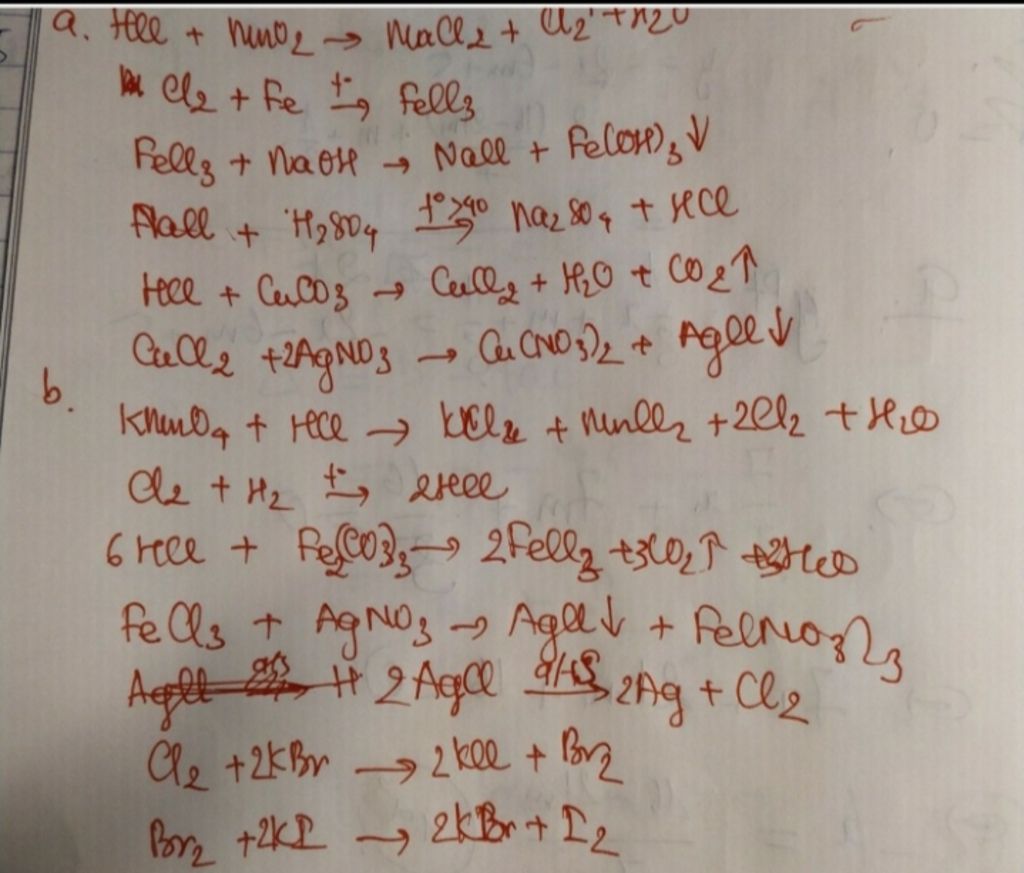 a. HCl + MnO2 → MaCl2 + Cl2↑ + H2O
Cl2 + Fe t°→ FeCl3
FeCl3 + NaOH → NaCl + Fe(OH)3↓
NaCl + H2SO4 t°>40→ Na2SO4 + HCl
HCl + CuCO3 → CuCl2 + H2O + CO2↑
CuCl2 + 2AgNO3 → Cu(NO3)2 + AgCl↓
b.
KMnO4 + HCl → KCl + MnCl2 + 2Cl2 + H2O
Cl2 + H2 t°→ 2HCl
6HCl + Fe2(CO3)3 → 2FeCl3 + 3CO2↑ + 3H2O
FeCl3 + AgNO3 → AgCl↓ + Fe(NO3)3
2AgCl a/s→ 2Ag + Cl2
Cl2 + 2KBr → 2KCl + Br2
Br2 + 2KI → 2KBr + I2